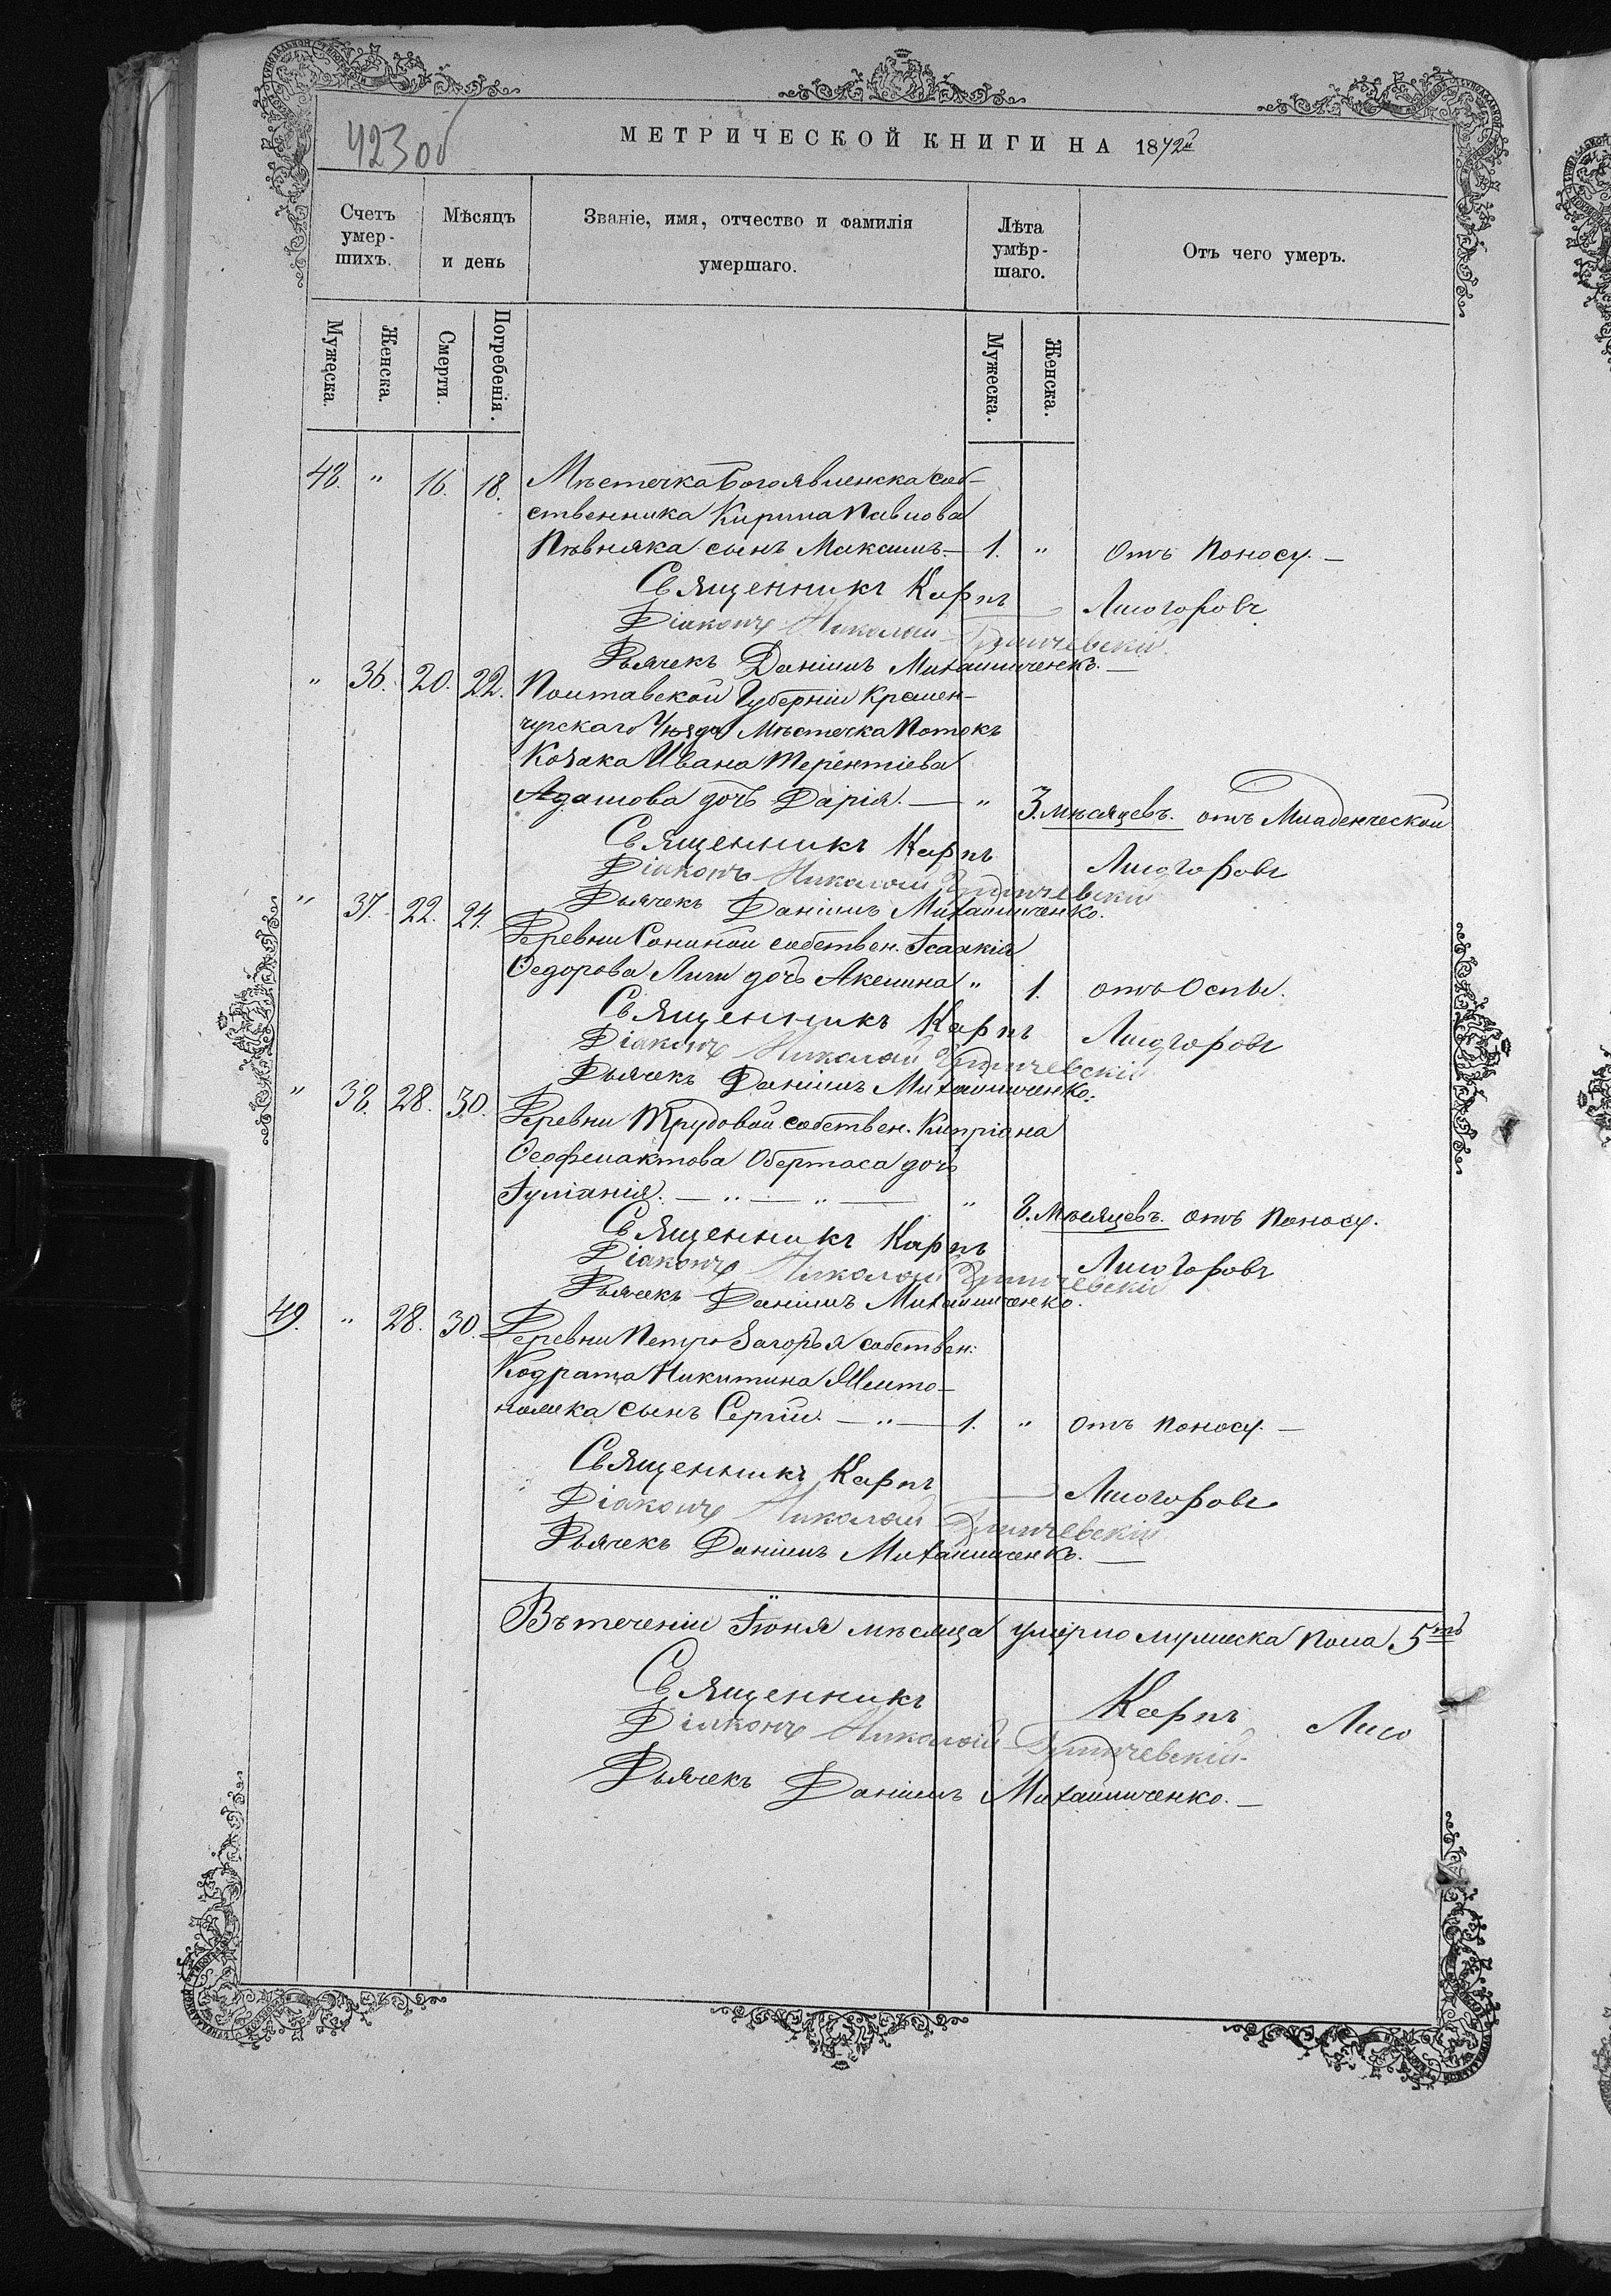 423об
МЕТРИЧЕСКОЙ КНИГИ НА 1872й
Счетъ умер- шихъ.
Мѣсяцъ и день
Званіе, имя, отчество и фамилія умершаго.
Лѣта умѣр- шаго.
Отъ чего умеръ.
Мужеска. Женска. Смерти. Погребенія. Мужеска. Женска.
48. " 16. 18. Мѣстечка Богоявленска соб-
ственника Кирила Павлова
Пѣвняка сынъ Максимъ. — 1. " Отъ поносу. —
Священникъ Карпъ Лисогоровъ
Діаконъ Николай
Дьячекъ Даніилъ Михайличенко. —
" 36. 20. 22. Полтавской Губерніи Кремен-
чугскаго Уѣзда Мѣстечка Потокъ
Козака Ивана Терентіева
Адамова дочь Дарія. — " 3. мѣсяцевъ. отъ Младенческой
Священникъ Карпъ Лисогоровъ
Діаконъ Николай
Дьячекъ Даніилъ Михайличенко.
" 37. 22. 24. Деревни Сониной собствен. Ісаакія
Ѳедорова Лиги дочь Акелина " 1. отъ Оспы.
Священникъ Карпъ Лисогоровъ
Діаконъ Николай
Дьячекъ Даніилъ Михайличенко.
" 38. 28. 30. Деревни Трудовой собствен. Кипріана
Ѳеофилактова Обертаса дочь
Іуліанія. — " — " — " 8. мѣсяцевъ. отъ поносу.
Священникъ Карпъ Лисогоровъ
Діаконъ Николай
Дьячекъ Даніилъ Михайличенко.
49. " 28. 30. Деревни Петро Загорья собствен:
Кодрата Никитина Желто-
ножка сынъ Сергій. — " — 1. " отъ поносу. —
Священникъ Карпъ — Лисогоровъ
Діаконъ Николай
Дьячекъ Даніилъ Михайличенко. —
Въ теченіи Іюня мѣсяца умерло мужеска пола 5ть
Священникъ Карпъ Лисо
Діаконъ Николай
Дьячекъ Даніилъ Михайличенко. —